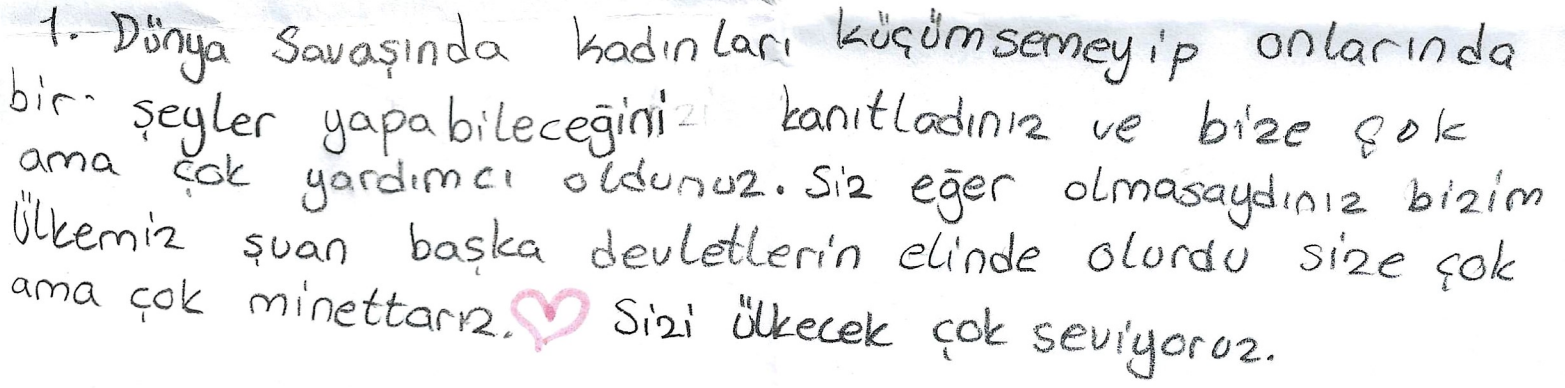 1. Dünya Savaşında kadınları küçümsemeyip onlarında
bir şeyler yapabileceğini kanıtladınız ve bize çok
ama çok yardımcı oldunuz. Siz eğer olmasaydınız bizim
Ülkemiz şuan başka devletlerin elinde olurdu size çok
ama çok minettarız. Sizi ülkecek çok seviyoruz.